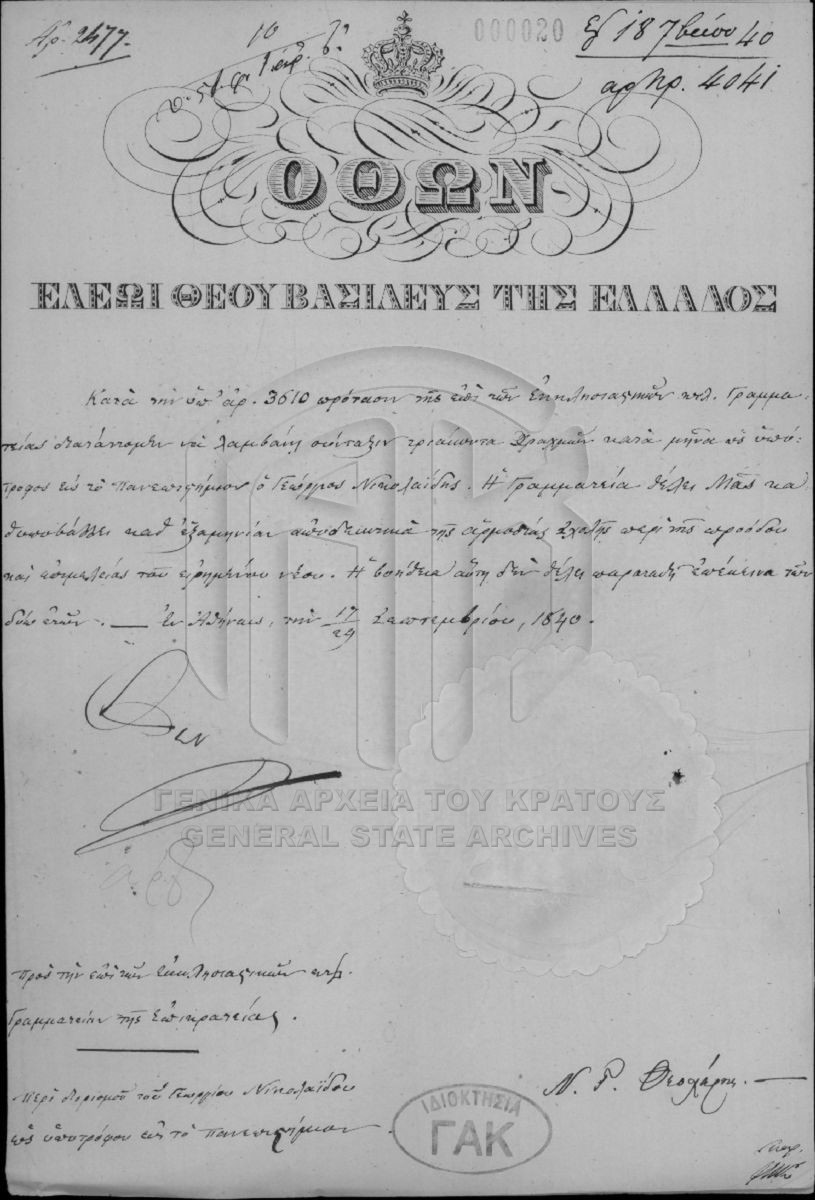 Αρ. 2477.
000020
187βρίου 40
αρ Πρ. 4041
ΟΘΩΝ
ΕΛΕΩΙ ΘΕΟΥ ΒΑΣΙΛΕΥΣ ΤΗΣ ΕΛΛΑΔΟΣ
Κατὰ τὴν ὑπ' ἀρ. 3610 πρότασιν τῆς ἐπὶ τῶν Ἐκκλησιαστικῶν κτλ. Γραμμα-
τείας διατάττομεν νὰ λαμβάνῃ σύνταξιν τριάκοντα Δραχμῶν κατὰ μῆνα ὡς ὑπό-
τροφος εἰς τὸ Πανεπιστήμιον ὁ Γεώργιος Νικολαΐδης. Ἡ Γραμματεία θέλει Μᾶς κα-
θυποβάλλει καθ' ἑξαμηνίαν ἀποδεικτικὰ τῆς ἁρμοδίας Σχολῆς περὶ τῆς προόδου
καὶ ἐπιμελείας τοῦ εἰρημένου νέου. Ἡ βοήθεια αὕτη δὲν θέλει παραταθῆ ἐπέκεινα τῶν
δύω ἐτῶν. — Ἐν Ἀθήναις, τὴν 17/29 Σεπτεμβρίου, 1840.
Όθων
ΓΕΝΙΚΑ ΑΡΧΕΙΑ ΤΟΥ ΚΡΑΤΟΥΣ
GENERAL STATE ARCHIVES
Πρὸς τὴν ἐπὶ τῶν Ἐκκλησιαστικῶν κτλ.
Γραμματείαν τῆς Ἐπικρατείας.
Περὶ διορισμοῦ τοῦ Γεωργίου Νικολαΐδου
ὡς ὑποτρόφου εἰς τὸ Πανεπιστήμιον
Ν. Γ. Θεοχάρης. —
ΙΔΙΟΚΤΗΣΙΑ
ΓΑΚ